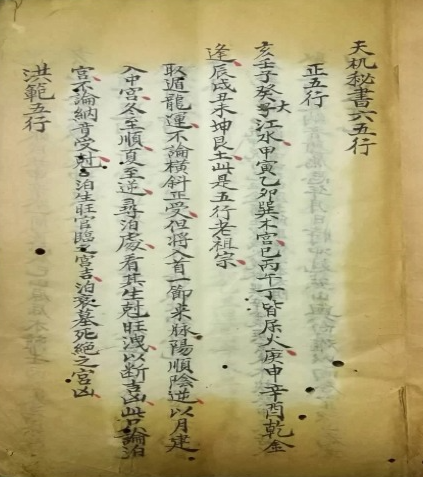 天机秘書六五行
正五行
亥壬子癸大江水甲寅乙卯巽木宮巳丙午丁皆属火庚申辛酉乾金
逢辰戌丑未坤艮土此是五行老祖宗
取廻龍運不論橫斜正受但將入首一節来脉陽順陰逆以月建
入中宮冬至順夏至逆尋泊處看其生剋旺洩以断吉凶此只論泊
宮不論納音受剋吉泊生旺官臨之宮吉泊衰墓死絶之宮凶
洪範五行